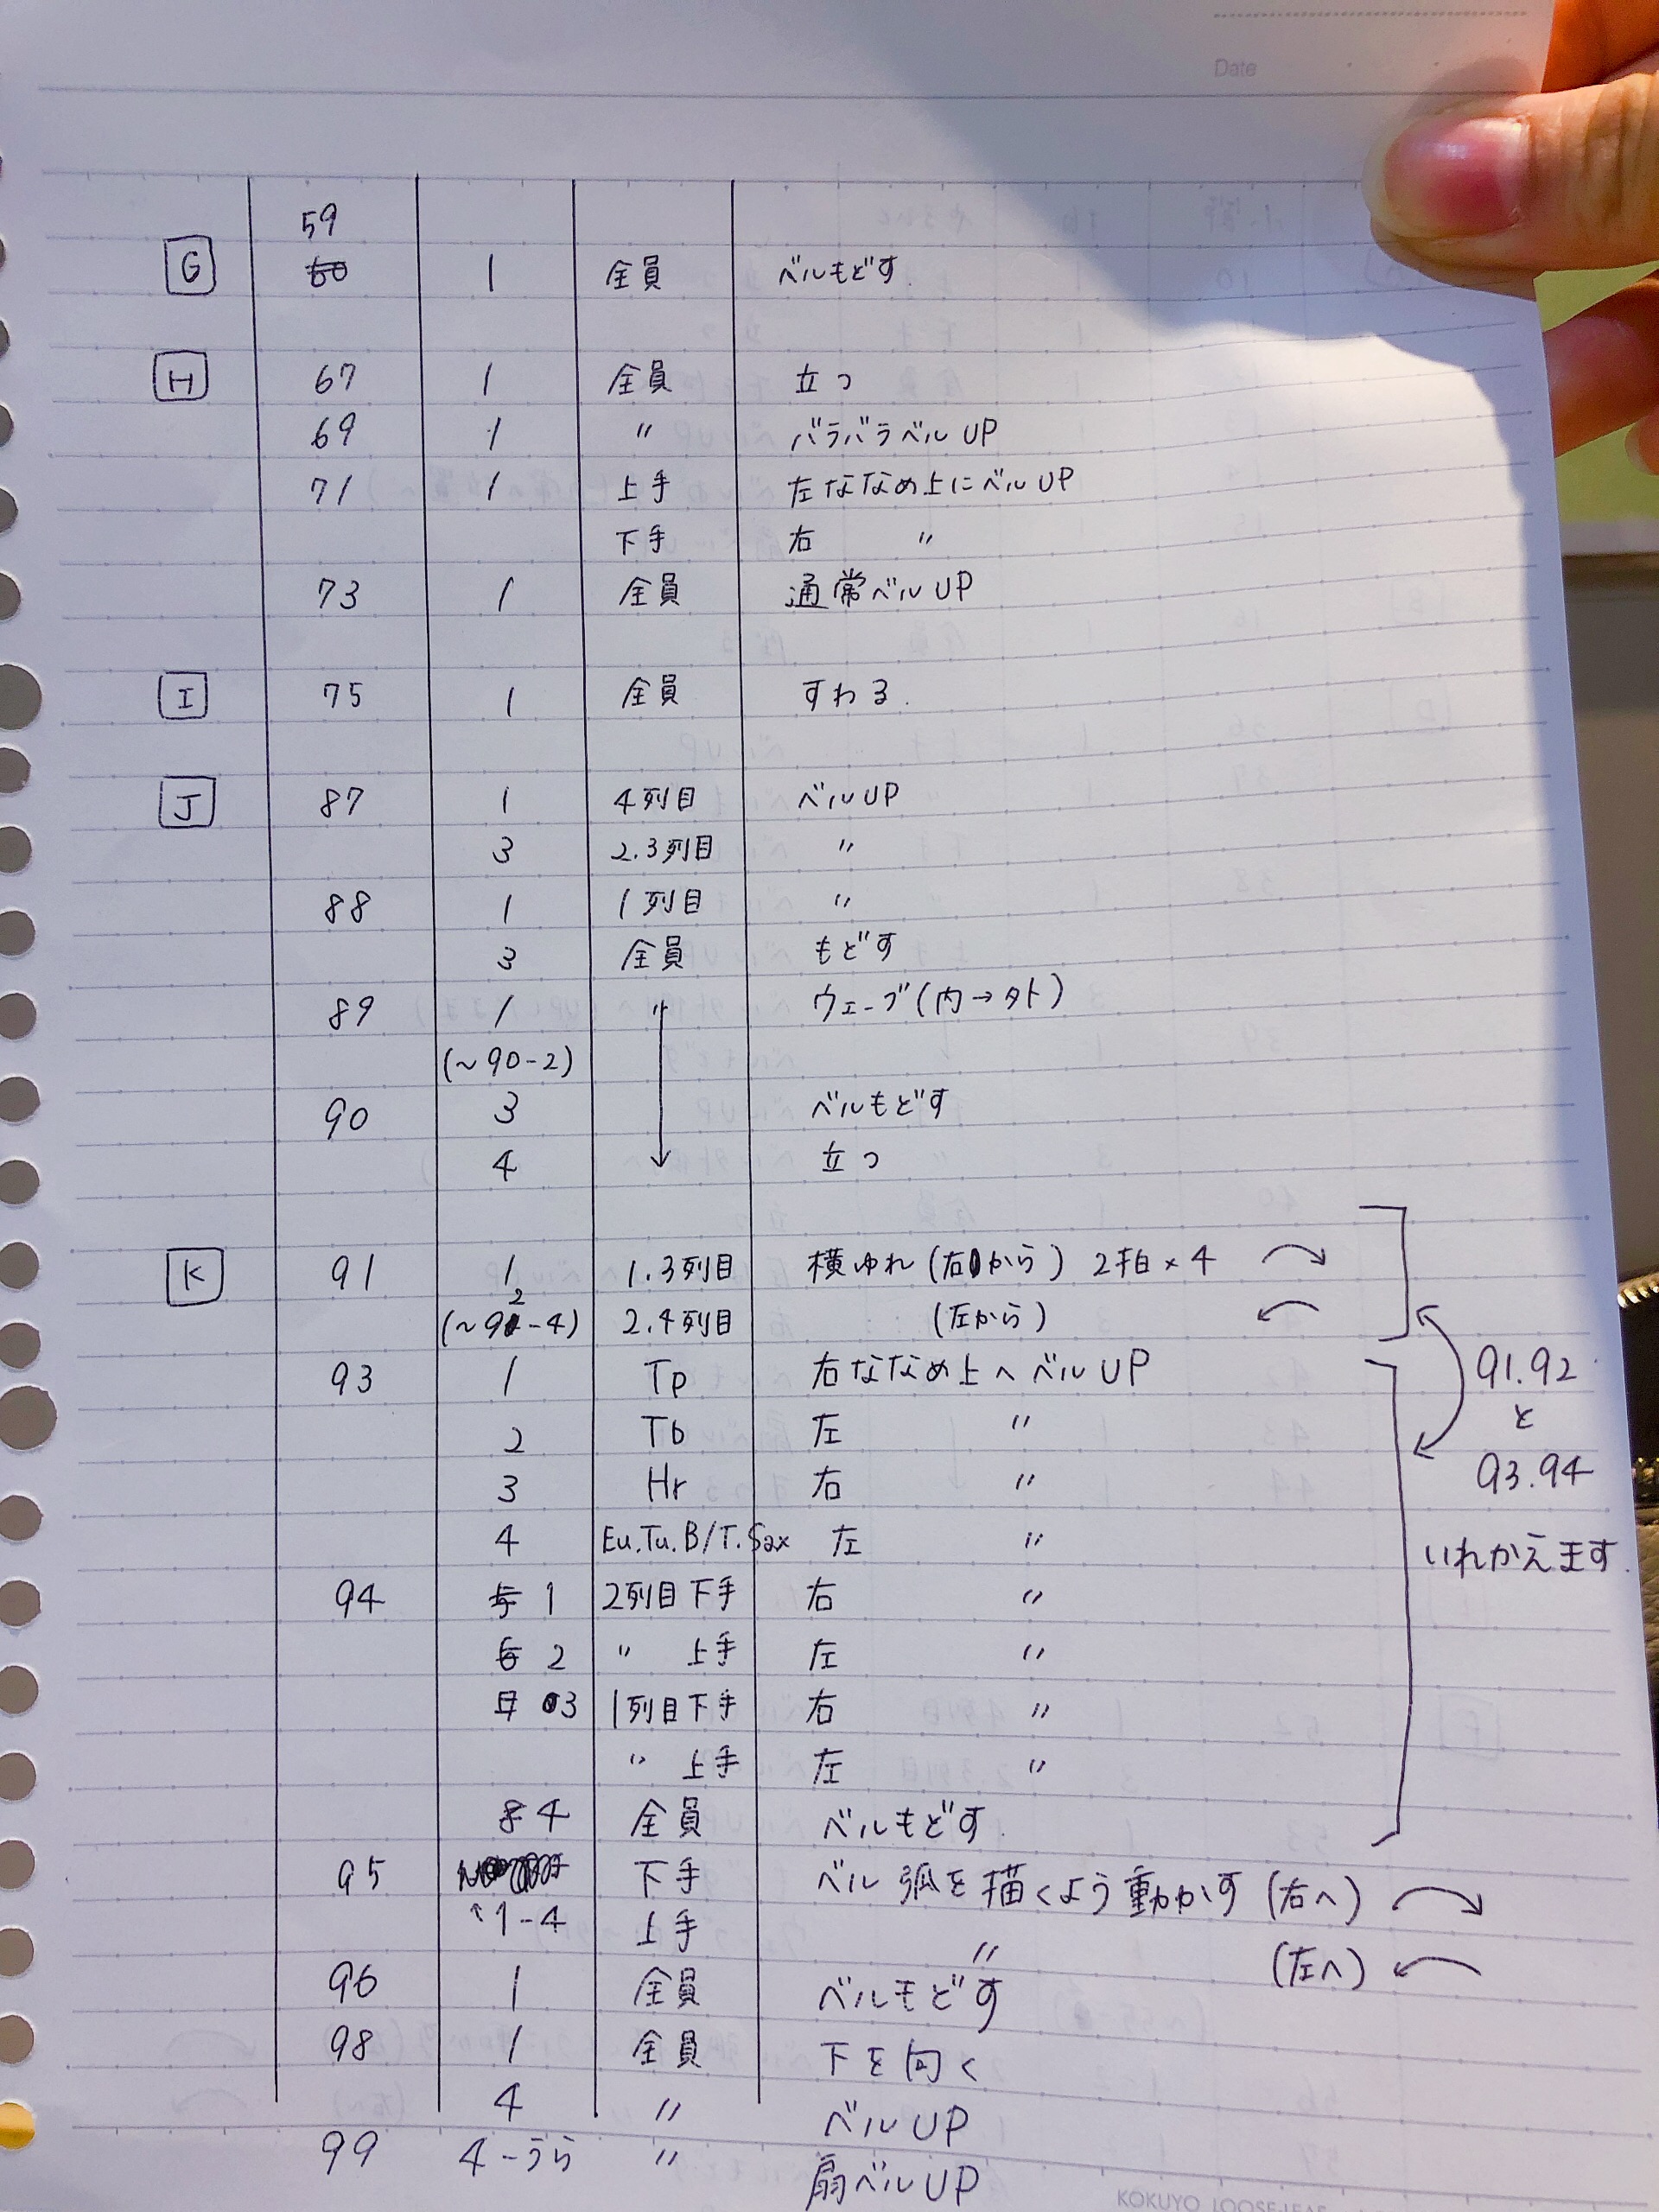 Date
59
G 60 1 全員 ベルもどす.
H 67 1 全員 立つ
69 1 〃 バラバラベルUP
71 1 上手 左ななめ上にベルUP
下手 右 〃
73 1 全員 通常ベルUP
I 75 1 全員 すわる.
J 87 1 4列目 ベルUP
3 2.3列目 〃
88 1 1列目 〃
3 全員 もどす
89 1 〃 ウェーブ(内→外)
(~90-2)
90 3 ベルもどす
4 立つ
K 91 1 1.3列目 横ゆれ(右から) 2拍×4
(~92-4) 2.4列目 (左から)
93 1 Tp 右ななめ上へベルUP
2 Tb 左 〃
3 Hr 右 〃
4 Eu.Tu.B/T.Sax 左 〃
94 1 2列目下手 右 〃
2 〃 上手 左 〃
3 1列目下手 右 〃
〃 上手 左 〃
4 全員 ベルもどす.
95 下手 ベル弧を描くよう動かす(右へ)
↑1-4 上手 〃 (左へ)
96 1 全員 ベルもどす
98 1 全員 下を向く
4 〃 ベルUP
99 4-うら 〃 扇ベルUP
91.92
と
93.94
いれかえます.
KOKUYO LOOSE-LEAF